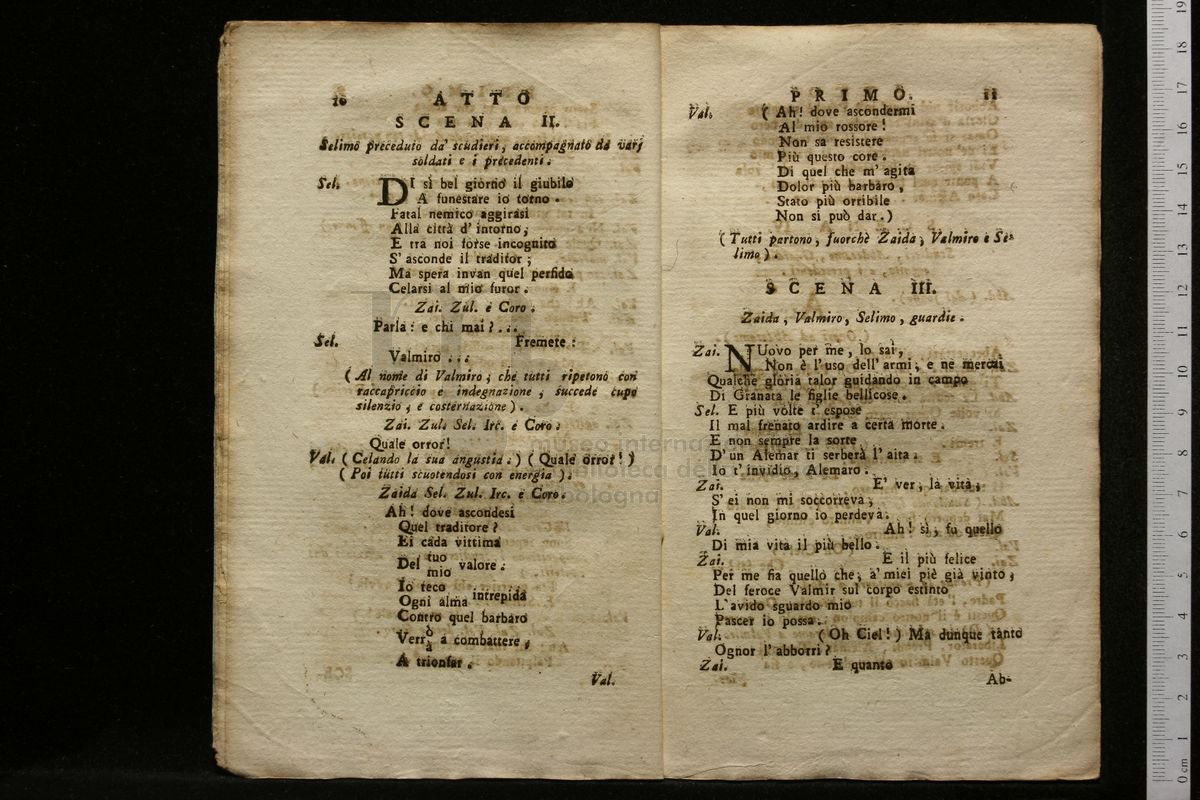 10 ATTO
SCENA II.
Selimo preceduto da' scudieri, accompagnato da varj
soldati e i precedenti.
Sel. DI sì bel giorno il giubilo
A funestare io torno.
Fatal nemico aggirasi
Alla città d'intorno,
E tra noi forse incognito
S'asconde il traditor;
Ma spera invan quel perfido
Celarsi al mio furor.
Zai. Zul. e Coro.
Parla: e chi mai?...
Sel. Fremete:
Valmiro...
(Al nome di Valmiro, che tutti ripetono con
raccapriccio e indegnazione, succede cupo
silenzio, e costernazione).
Zai. Zul. Sel. Irc. e Coro.
Quale orror!
Val. (Celando la sua angustia.) (Quale orror!)
(Poi tutti scuotendosi con energia).
Zaida Sel. Zul. Irc. e Coro.
Ah! dove ascondesi
Quel traditore?
Ei cada vittima
Del tuo valore.
mio
Io teco
Ogni alma intrepida
Contro quel barbaro
Verrò a combattere,
à
A trionfar.
Val.
PRIMO. 11
Val. (Ah! dove ascondermi
Al mio rossore!
Non sa resistere
Più questo core.
Di quel che m'agita
Dolor più barbaro,
Stato più orribile
Non si può dar.)
(Tutti partono, fuorchè Zaida, Valmiro e Se-
limo).
SCENA III.
Zaida, Valmiro, Selimo, guardie.
Zai. NUovo per me, lo sai,
Non è l'uso dell'armi; e ne mercai
Qualche gloria talor guidando in campo
Di Granata le figlie bellicose.
Sel. E più volte t'espose
Il mal frenato ardire a certa morte.
E non sempre la sorte
D'un Alemar ti serberà l'aita.
Io t'invidio, Alemaro.
Zai. E' ver, la vita,
S'ei non mi soccorreva,
In quel giorno io perdeva.
Val. Ah! sì, fu quello
Di mia vita il più bello.
Zai. E il più felice
Per me fia quello che, a' miei piè già vinto,
Del feroce Valmir sul corpo estinto
L'avido sguardo mio
Pascer io possa.
Val. (Oh Ciel!) Ma dunque tanto
Ognor l'abborri?
Zai. E quanto
Ab-
museo interna
biblioteca de
bologna